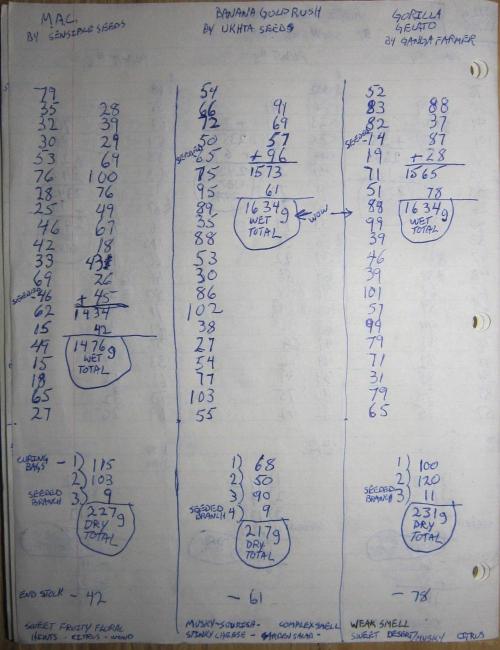 M.A.C.
BY SENSIBLE SEEDS
79
35 28
32 39
30 29
53 69
76 100
28 76
25 49
46 67
42 18
33 43
69 26
SEEDED 46 + 45
62 1434
15 42
49 1476g
15 WET
18 TOTAL
65
27
CURING BAGS - 1) 115
2) 103
SEEDED BRANCH 3) 9
227g
DRY
TOTAL
END STOCK - 42
SWEET FRUITY FLORAL
HINTS - CITRUS - WOOD
BANANA GOLD RUSH
BY UKHTA SEEDS
54
66 91
72 69
50 57
SEEDED 65 + 96
75 1573
95 61
89 1634g WOW
35 WET
88 TOTAL
53
30
86
102
38
27
54
77
103
55
1) 68
2) 50
3) 90
SEEDED BRANCH 4) 9
217g
DRY
TOTAL
- 61
MUSKY-SOURISH- COMPLEX SMELL
STINKY CHEESE - GARDEN SALAD -
GORILLA
GELATO
BY GANGA FARMER
52
83 88
82 37
SEEDED 14 87
19 + 28
71 1565
51 78
88 1634g
99 WET
39 TOTAL
46
39
101
57
99
79
71
31
79
65
1) 100
2) 120
SEEDED BRANCH 3) 11
231g
DRY
TOTAL
- 78
WEAK SMELL
SWEET DESERT/MUSKY CITRUS